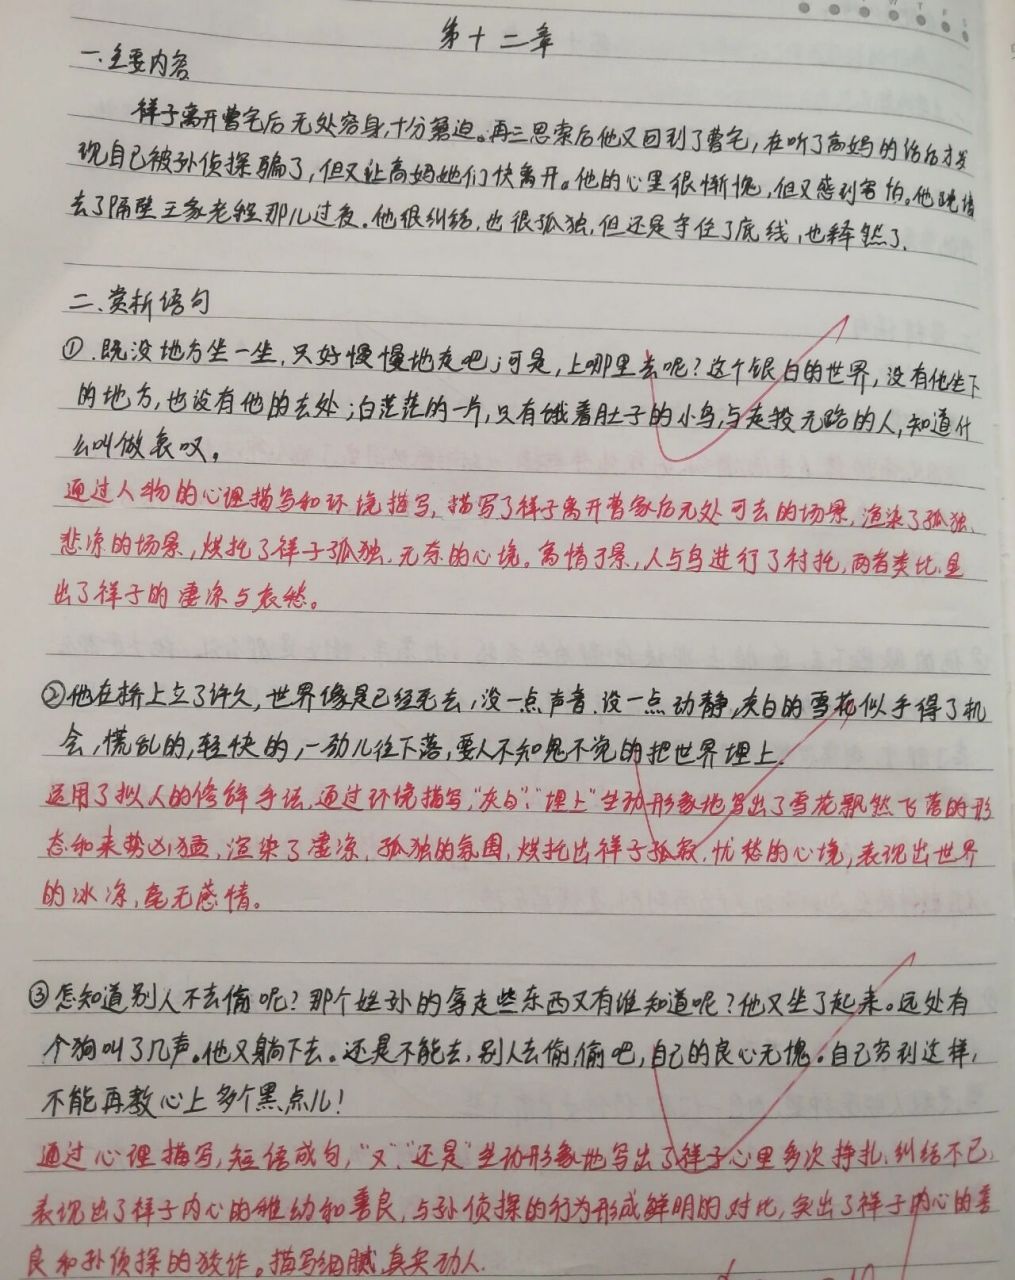 第十二章
一.主要内容
祥子离开曹宅后无处容身,十分窘迫。再三思索后他又回到了曹宅,在听了高妈的话后才发
现自己被孙侦探骗了,但又让高妈她们快离开。他的心里很惭愧,但又感到害怕。他晚上
去了隔壁王家老程那儿过夜.他很纠结,也很孤独,但还是守住了底线,也释然了.
二.赏析语句
①.既没地方坐一坐,只好慢慢地走吧;可是,上哪里去呢?这个银白的世界,没有他坐下
的地方,也没有他的去处;白茫茫的一片,只有饿着肚子的小鸟,与走投无路的人,知道什
么叫做哀叹。
通过人物的心理描写和环境描写,描写了祥子离开曹家后无处可去的场景,渲染了孤独、
悲凉的场景,烘托了祥子孤独.无奈的心境。寓情于景,人与鸟进行了衬托,两者类比.显
出了祥子的凄凉与哀愁。
②他在桥上立了许久,世界像是已经死去,没一点声音.没一点动静,灰白的雪花似乎得了机
会,慌乱的,轻快的,一劲儿往下落,要人不知鬼不觉的把世界埋上.
运用了拟人的修辞手法,通过环境描写,"灰白"、"埋上"生动形象地写出了雪花飘然飞落的形
态和来势凶猛,渲染了凄凉.孤独的氛围,烘托出祥子孤寂.忧愁的心境,表现出世界
的冰冷,毫无感情。
③怎知道别人不去偷呢?那个姓孙的拿走些东西又有谁知道呢?他又坐了起来。远处有
个狗叫了几声。他又躺下去。还是不能去,别人去偷,偷吧,自己的良心无愧。自己穷到这样,
不能再教心上多个黑点儿!
通过心理描写,短语成句,"又"、"还是"生动形象地写出了祥子心里多次挣扎.纠结不已,
表现出了祥子内心的稚幼和善良,与孙侦探的行为形成鲜明的对比,突出了祥子内心的善
良和孙侦探的狡诈。描写细腻,真实动人.